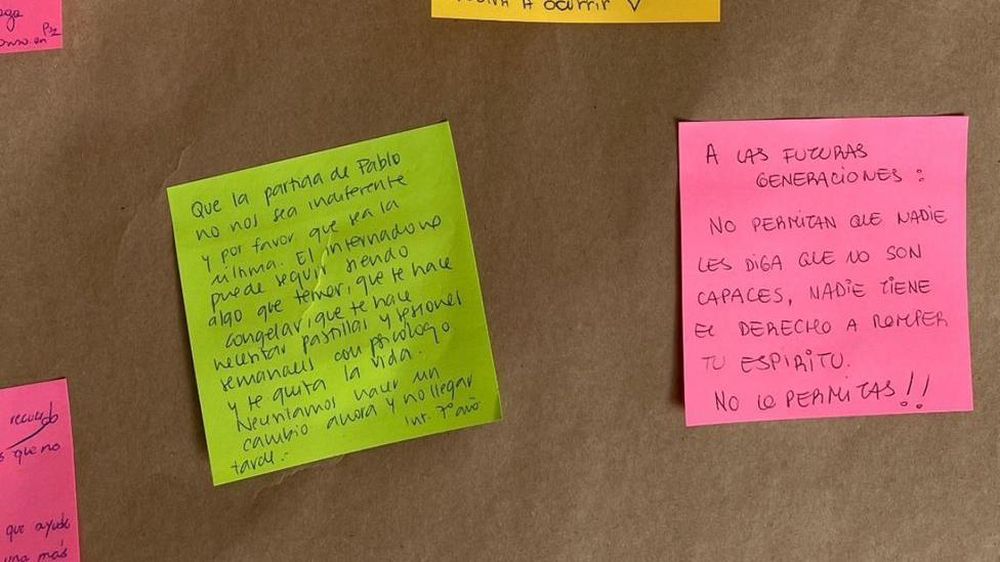 A OCURRIR
Que la partida de Pablo
no nos sea indiferente
y por favor que sea la
última. El internado no
puede seguir siendo
algo que temer, que te hace
congelar, que te hace
necesitar pastillas y sesiones
semanales con psicólogo
y te quita la vida.
Necesitamos hacer un
cambio ahora y no llegar
tarde.-
Int. 7º año.
A LAS FUTURAS
GENERACIONES:
NO PERMITAN QUE NADIE
LES DIGA QUE NO SON
CAPACES, NADIE TIENE
EL DERECHO A ROMPER
TU ESPIRITU.
NO LO PERMITAS!!
recuerdo
que no
que ayude
una más